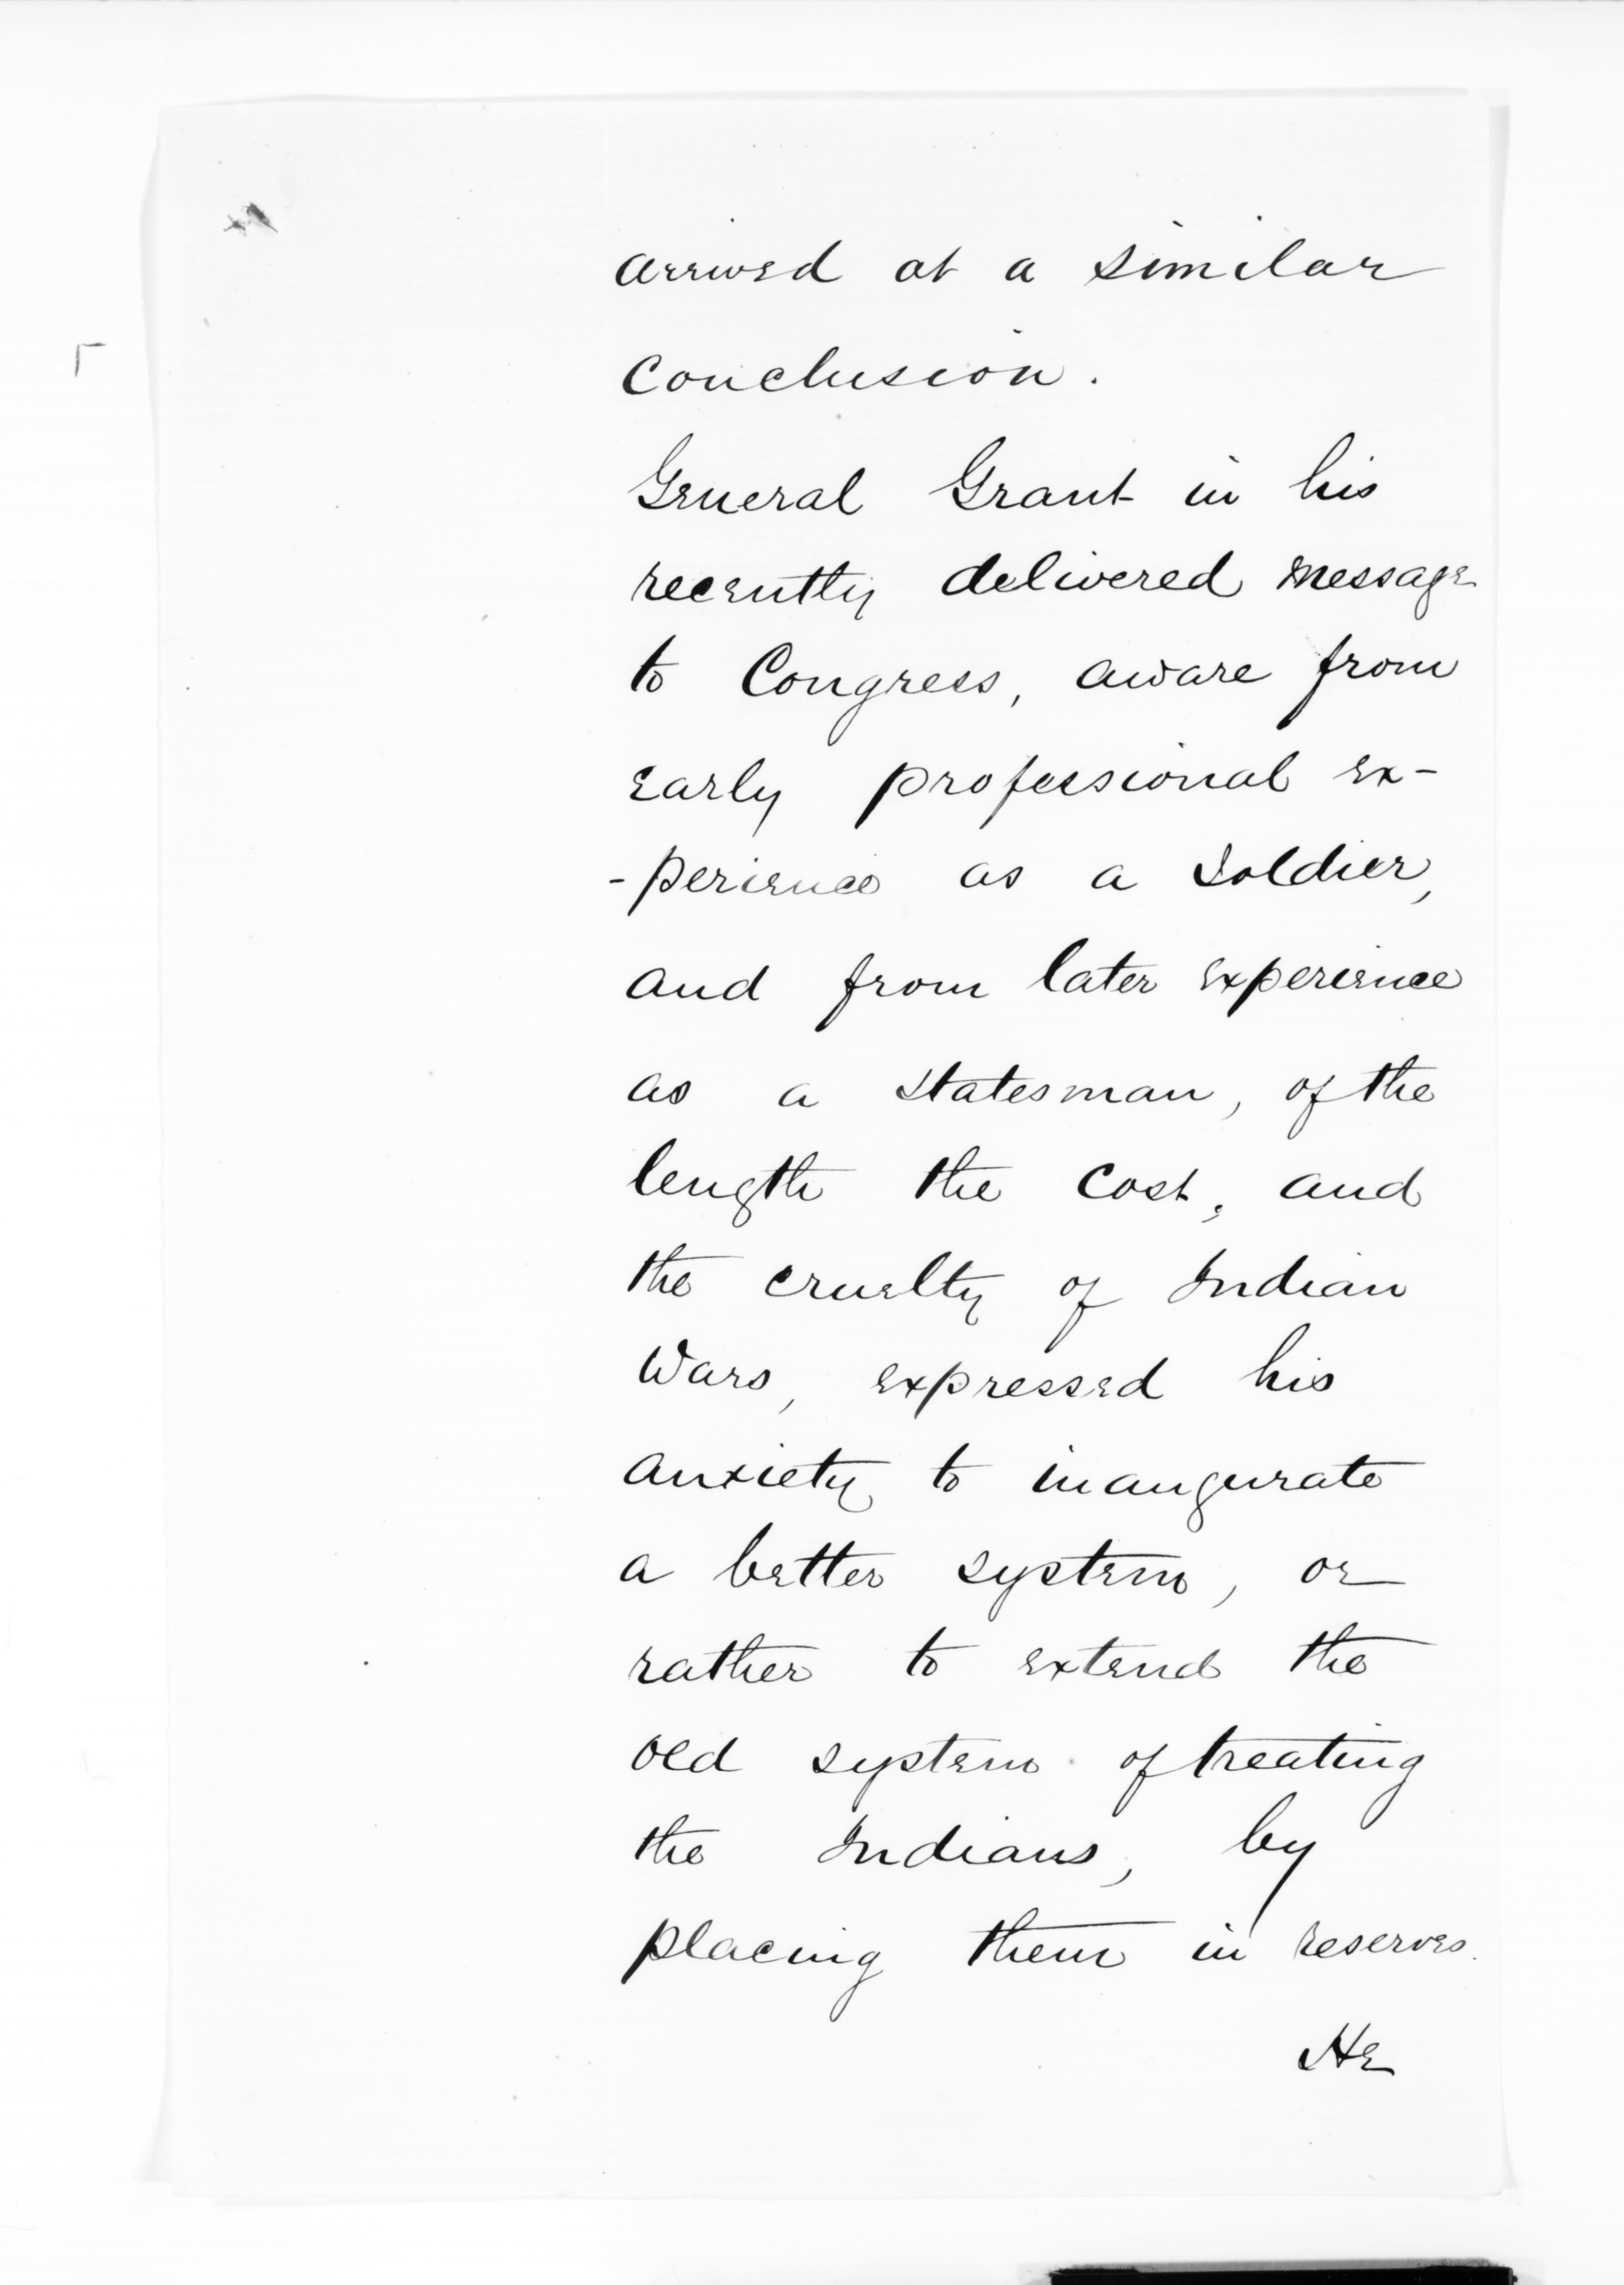 arrived at a similar
conclusion.
General Grant in his
recently delivered message
to Congress, aware from
early professional ex-
-perience as a soldier,
and from later experience
as a statesman, of the
length the cost, and
the cruelty of Indian
Wars, expressed his
anxiety to inaugurate
a better system, or
rather to extend the
old system of treating
the Indians, by
placing them in reserves.
He